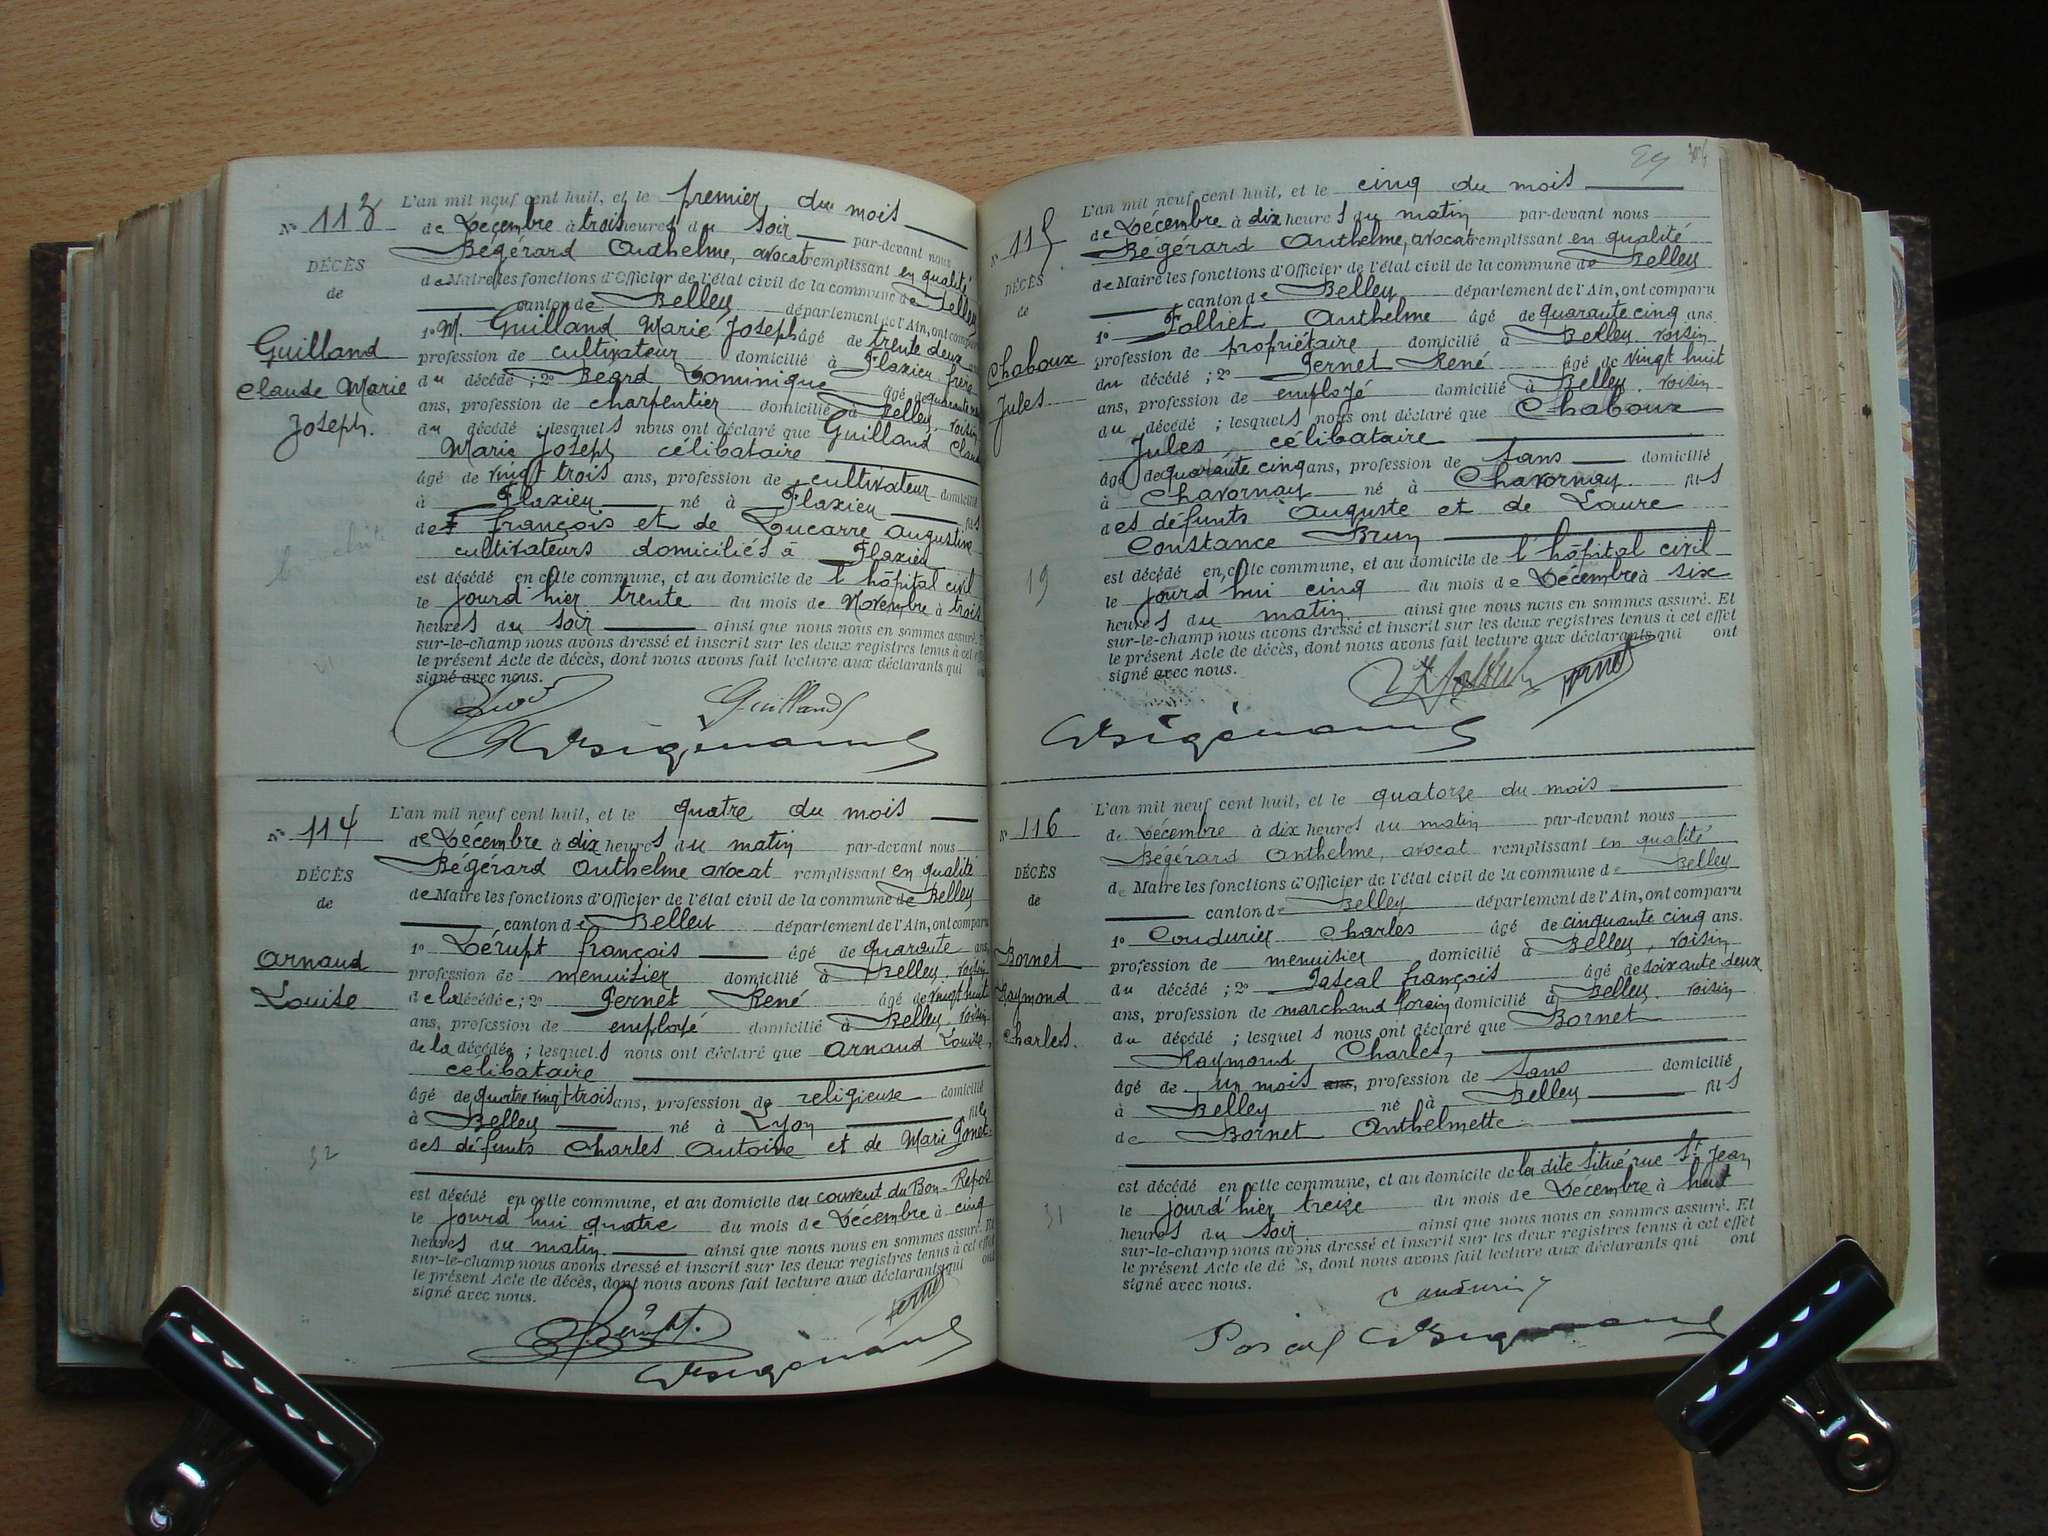 Nº 113
DÉCÈS
de
Guilland
Claude Marie
Joseph.
L'an mil neuf cent huit, et le premier du mois
de Décembre à trois heures du soir par-devant nous
Bégérard Anthelme, avocat remplissant en qualité
de Maire les fonctions d'Officier de l'état civil de la commune de Belley
canton de Belley département de l'Ain, ont comparu
1º M. Guilland Marie Joseph âgé de trente deux ans
profession de cultivateur domicilié à Flaxieu frère
du décédé ; 2º Beard Dominique âgé de
ans, profession de charpentier domicilié à Belley, voisin
du décédé ; lesquels nous ont déclaré que Guilland Claude
Marie Joseph célibataire
âgé de vingt trois ans, profession de cultivateur domicilié
à Flaxieu né à Flaxieu fils
de François et de Ducarre Augustine
cultivateurs domiciliés à Flaxieu
est décédé en cette commune, et au domicile de l'hôpital civil
le jourd'hier trente du mois de Novembre à trois
heures du soir ainsi que nous nous en sommes assuré. Et
sur-le-champ nous avons dressé et inscrit sur les deux registres tenus à cet effet
le présent Acte de décès, dont nous avons fait lecture aux déclarants qui ont
signé avec nous.
Guilland
Nº 114
DÉCÈS
de
Arnaud
Louise
32
L'an mil neuf cent huit, et le quatre du mois
de Décembre à dix heures du matin par-devant nous
Bégérard Anthelme avocat remplissant en qualité
de Maire les fonctions d'Officier de l'état civil de la commune de Belley
canton de Belley département de l'Ain, ont comparu
1º Dérupt François âgé de quarante ans
profession de menuisier domicilié à Belley, voisin
de la décédée ; 2º Pernet René âgé de vingt huit
ans, profession de employé domicilié à Belley, voisin
de la décédée ; lesquels nous ont déclaré que Arnaud Louise,
célibataire
âgé de quatre vingt trois ans, profession de religieuse domicilié
à Belley né à Lyon fille
des défunts Charles Antoine et de Marie Ponet
est décédé en cette commune, et au domicile du couvent du Bon-Repos
le jourd'hui quatre du mois de Décembre à cinq
heures du matin ainsi que nous nous en sommes assuré. Et
sur-le-champ nous avons dressé et inscrit sur les deux registres tenus à cet effet
le présent Acte de décès, dont nous avons fait lecture aux déclarants qui ont
signé avec nous.
Pernet
Nº 115
DÉCÈS
de
Chaboux
Jules
19
L'an mil neuf cent huit, et le cinq du mois
de Décembre à dix heures du matin par-devant nous
Bégérard Anthelme, avocat remplissant en qualité
de Maire les fonctions d'Officier de l'état civil de la commune de Belley
canton de Belley département de l'Ain, ont comparu
1º Folliet Anthelme âgé de quarante cinq ans.
profession de propriétaire domicilié à Belley voisin
du décédé ; 2º Pernet René âgé de vingt huit
ans, profession de employé domicilié à Belley. voisin
du décédé ; lesquels nous ont déclaré que Chaboux
Jules célibataire
âgé de quarante cinq ans, profession de sans domicilié
à Chavornay né à Chavornay. fils
des défunts Auguste et de Laure
Constance Brun
est décédé en cette commune, et au domicile de l'hôpital civil
le jourd'hui cinq du mois de Décembre à six
heures du matin ainsi que nous nous en sommes assuré. Et
sur-le-champ nous avons dressé et inscrit sur les deux registres tenus à cet effet
le présent Acte de décès, dont nous avons fait lecture aux déclarants qui ont
signé avec nous.
Pernet
Nº 116
DÉCÈS
de
Bornet
Raymond
Charles.
31
L'an mil neuf cent huit, et le quatorze du mois
de Décembre à dix heures du matin par-devant nous
Bégérard Anthelme, avocat remplissant en qualité
de Maire les fonctions d'Officier de l'état civil de la commune de Belley
canton de Belley département de l'Ain, ont comparu
1º Coudurier Charles âgé de cinquante cinq ans.
profession de menuisier domicilié à Belley, voisin
du décédé ; 2º Pascal François âgé de soixante deux
ans, profession de marchand forain domicilié à Belley. voisin
du décédé ; lesquels nous ont déclaré que Bornet
Raymond Charles,
âgé de un mois ans, profession de sans domicilié
à Belley né à Belley fils
de Bornet Anthelmette
est décédé en cette commune, et au domicile de la dite situé rue St Jean
le jourd'hier treize du mois de Décembre à huit
heures du soir ainsi que nous nous en sommes assuré. Et
sur-le-champ nous avons dressé et inscrit sur les deux registres tenus à cet effet
le présent Acte de décès, dont nous avons fait lecture aux déclarants qui ont
signé avec nous.
Coudurier
Pascal